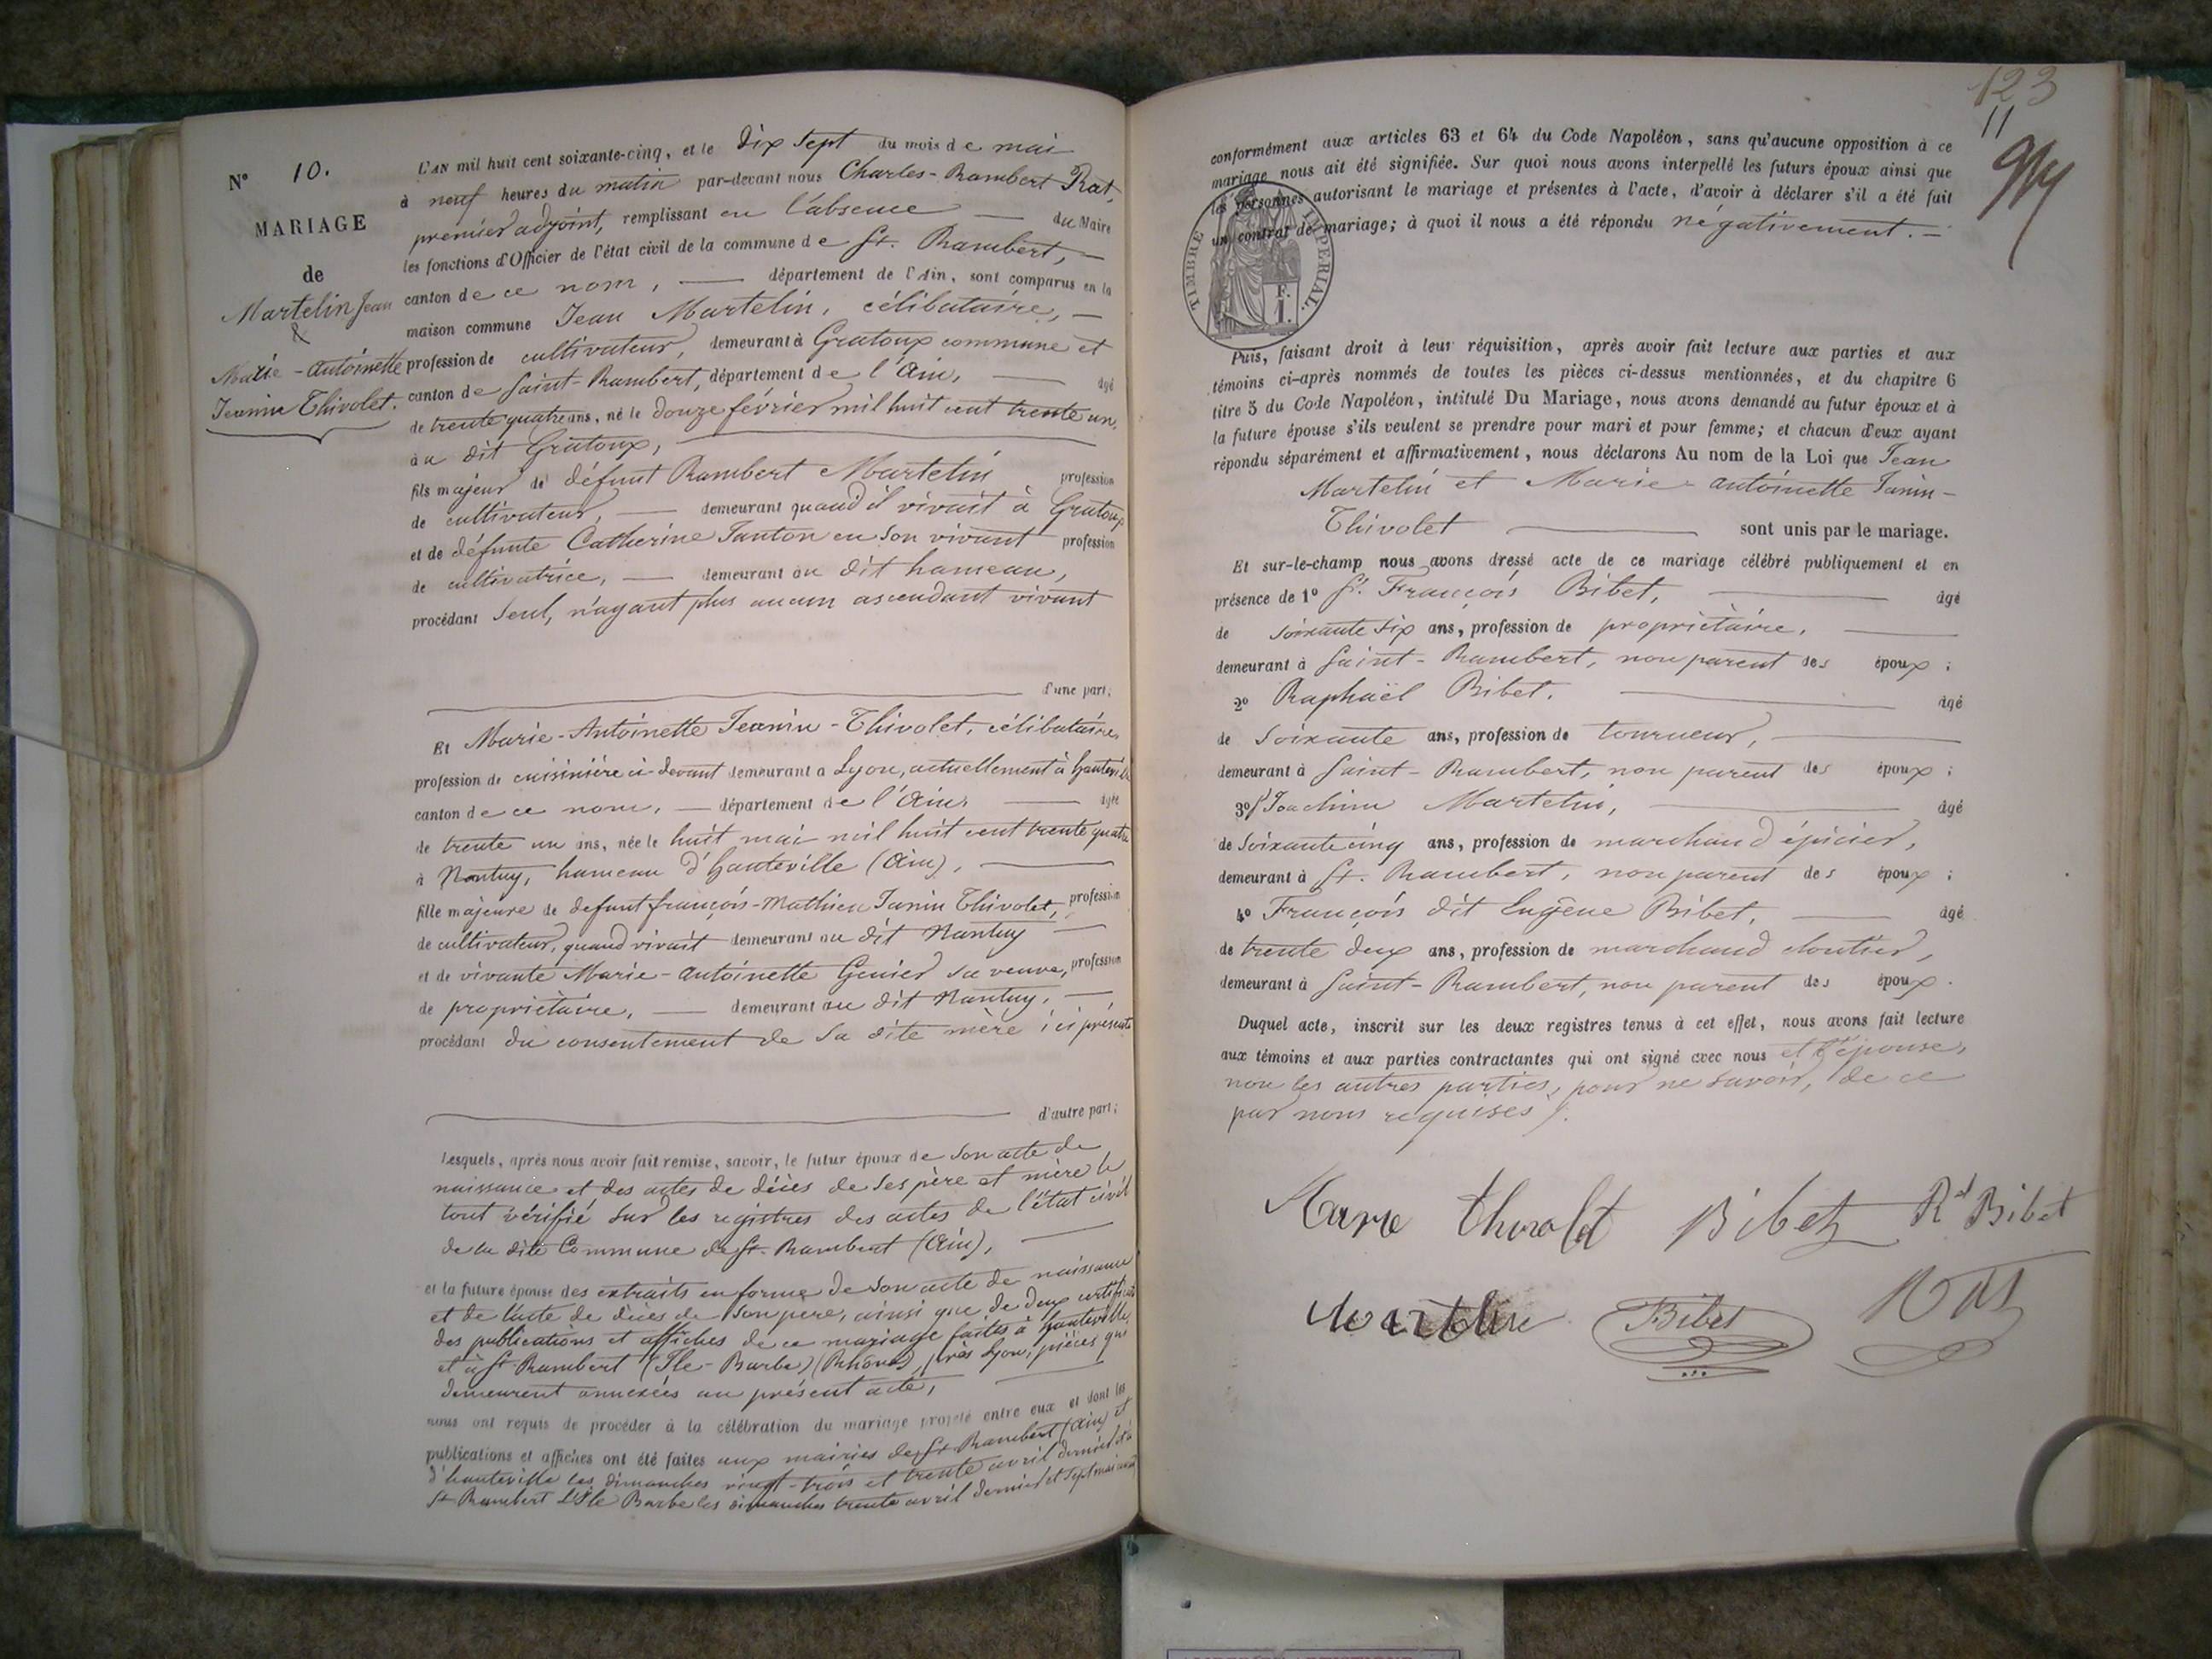 N° 10.
MARIAGE
de
Martelin Jean
&
Marie-Antoinette
Jeanin Thivolet.
L'AN mil huit cent soixante-cinq, et le dix Sept du mois de mai
à neuf heures du matin par-devant nous Charles-Rambert Rat,
premier adjoint, remplissant en l'absence du Maire
les fonctions d'Officier de l'état civil de la commune de St. Rambert,
canton de ce nom, département de l'Ain, sont comparus en la
maison commune Jean Martelin, célibataire,
profession de cultivateur, demeurant à Gratoux commune et
canton de Saint-Rambert, département de l'Ain, âgé
de trente quatre ans, né le douze février mil huit cent trente un,
au dit Gratoux,
fils majeur de défunt Rambert Martelin profession
de cultivateur, demeurant quand il vivait à Gratoux
et de défunte Catherine Tanton en son vivant profession
de cultivatrice, demeurant au dit hameau,
procédant Seul, n'ayant plus aucun ascendant vivant
d'une part;
Et Marie-Antoinette Jeanin-Thivolet, célibataire,
profession de cuisinière ci-devant demeurant à Lyon, actuellement à hauteville
canton de ce nom, département de l'Ain, âgée
de trente un ans, née le huit mai mil huit cent trente quatre
à Nantuy, hameau d'hauteville (Ain),
fille majeure de defunt françois-Mathieu Janin Thivolet, profession
de cultivateur, quand vivait demeurant au dit Nantuy
et de vivante Marie-Antoinette Genier sa veuve, profession
de propriétaire, demeurant au dit Nantuy,
procédant du consentement de sa dite mère ici présente
d'autre part;
Lesquels, après nous avoir fait remise, savoir, le futur époux de son acte de
naissance et des actes de décès de ses père et mère le
tout vérifié sur les registres des actes de l'état civil
de la dite Commune de St. Rambert (Ain),
et la future épouse des extraits en forme de son acte de naissance
et de l'acte de décès de son père, ainsi que de deux certificats
des publications et affiches de ce mariage faites à hauteville
et à St Rambert (Ile-Barbe) (Rhône), près Lyon, pièces qui
demeurent annexées au présent acte,
nous ont requis de procéder à la célébration du mariage projeté entre eux et dont les
publications et affiches ont été faites aux mairies de St Rambert (Ain) et
d'hauteville les dimanches vingt-trois et trente avril dernier et à
St Rambert L'Ile Barbe les dimanches trente avril dernier et sept mai courant
123
11
conformément aux articles 63 et 64 du Code Napoléon, sans qu'aucune opposition à ce
mariage nous ait été signifiée. Sur quoi nous avons interpellé les futurs époux ainsi que
les personnes autorisant le mariage et présentes à l'acte, d'avoir à déclarer s'il a été fait
un contrat de mariage; à quoi il nous a été répondu négativement.
TIMBRE IMPÉRIAL.
F.
1.
Puis, faisant droit à leur réquisition, après avoir fait lecture aux parties et aux
témoins ci-après nommés de toutes les pièces ci-dessus mentionnées, et du chapitre 6
titre 5 du Code Napoléon, intitulé Du Mariage, nous avons demandé au futur époux et à
la future épouse s'ils veulent se prendre pour mari et pour femme; et chacun d'eux ayant
répondu séparément et affirmativement, nous déclarons Au nom de la Loi que Jean
Martelin et Marie-antoinette Janin-
Thivolet sont unis par le mariage.
Et sur-le-champ nous avons dressé acte de ce mariage célébré publiquement et en
présence de 1° Sr. François Bibet, âgé
de soixante six ans, profession de propriétaire,
demeurant à Saint-Rambert, non parent des époux;
2° Raphaël Bibet, âgé
de soixante ans, profession de tourneur,
demeurant à Saint-Rambert, non parent des époux;
3° Joachim Martelin, âgé
de soixante cinq ans, profession de marchand épicier,
demeurant à St. Rambert, non parent des époux;
4° François dit Eugène Bibet, âgé
de trente deux ans, profession de marchand cloutier,
demeurant à Saint-Rambert, non parent des époux.
Duquel acte, inscrit sur les deux registres tenus à cet effet, nous avons fait lecture
aux témoins et aux parties contractantes qui ont signé avec nous et l'épouse,
non les autres parties, pour ne savoir, de ce
par nous requises.
Marie Thivolet Bibet Rl Bibet
Martelin Bibet Rat